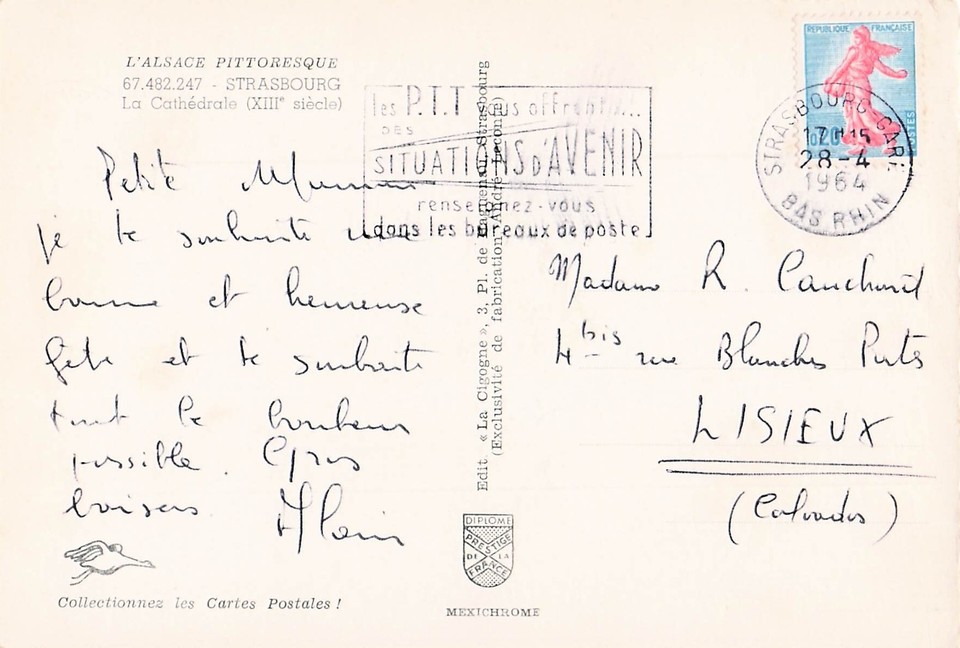 L'ALSACE PITTORESQUE
67.482.247 - STRASBOURG
La Cathédrale (XIIIe siècle)
Petite Maman
je te souhaite une
bonne et heureuse
fête et te souhaite
tout le bonheur
possible. Gros
baisers Alain
Collectionnez les Cartes Postales !
Edit « La Cigogne », 3, Pl. de Haguenau, Strasbourg
(Exclusivité de fabrication André Leconte)
DIPLOME
PRESTIGE
DE LA
FRANCE
MEXICHROME
les P.T.T vous offrent...
DES
SITUATIONS D'AVENIR
renseignez-vous
dans les bureaux de poste
REPUBLIQUE FRANÇAISE
0,20
POSTES
STRASBOURG GARE
17H15
28-4
1964
BAS RHIN
Madame R.
4 bis rue Blanches Portes
LISIEUX
(Calvados)